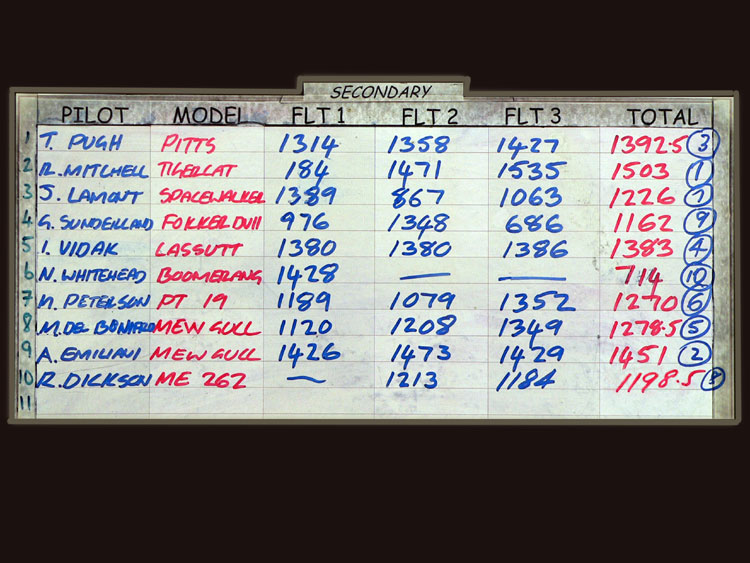 SECONDARY
PILOT MODEL FLT 1 FLT 2 FLT 3 TOTAL
1 T. PUGH PITTS 1314 1358 1427 1392.5 3
2 R. MITCHELL TIGERCAT 184 1471 1535 1503 1
3 J. LAMONT SPACEWALKER 1389 867 1063 1226 7
4 G. SUNDERLAND FOKKER DVII 976 1348 686 1162 9
5 I. VIDAK LASSUTT 1380 1380 1386 1383 4
6 N. WHITEHEAD BOOMERANG 1428 — — 714 10
7 N. PETERSON PT 19 1189 1079 1352 1270 6
8 M. DEL MEW GULL 1120 1208 1349 1278.5 5
9 A. EMILIANI MEW GULL 1426 1473 1429 1451 2
10 R. DICKSON ME 262 ~ 1213 1184 1198.5 8
11